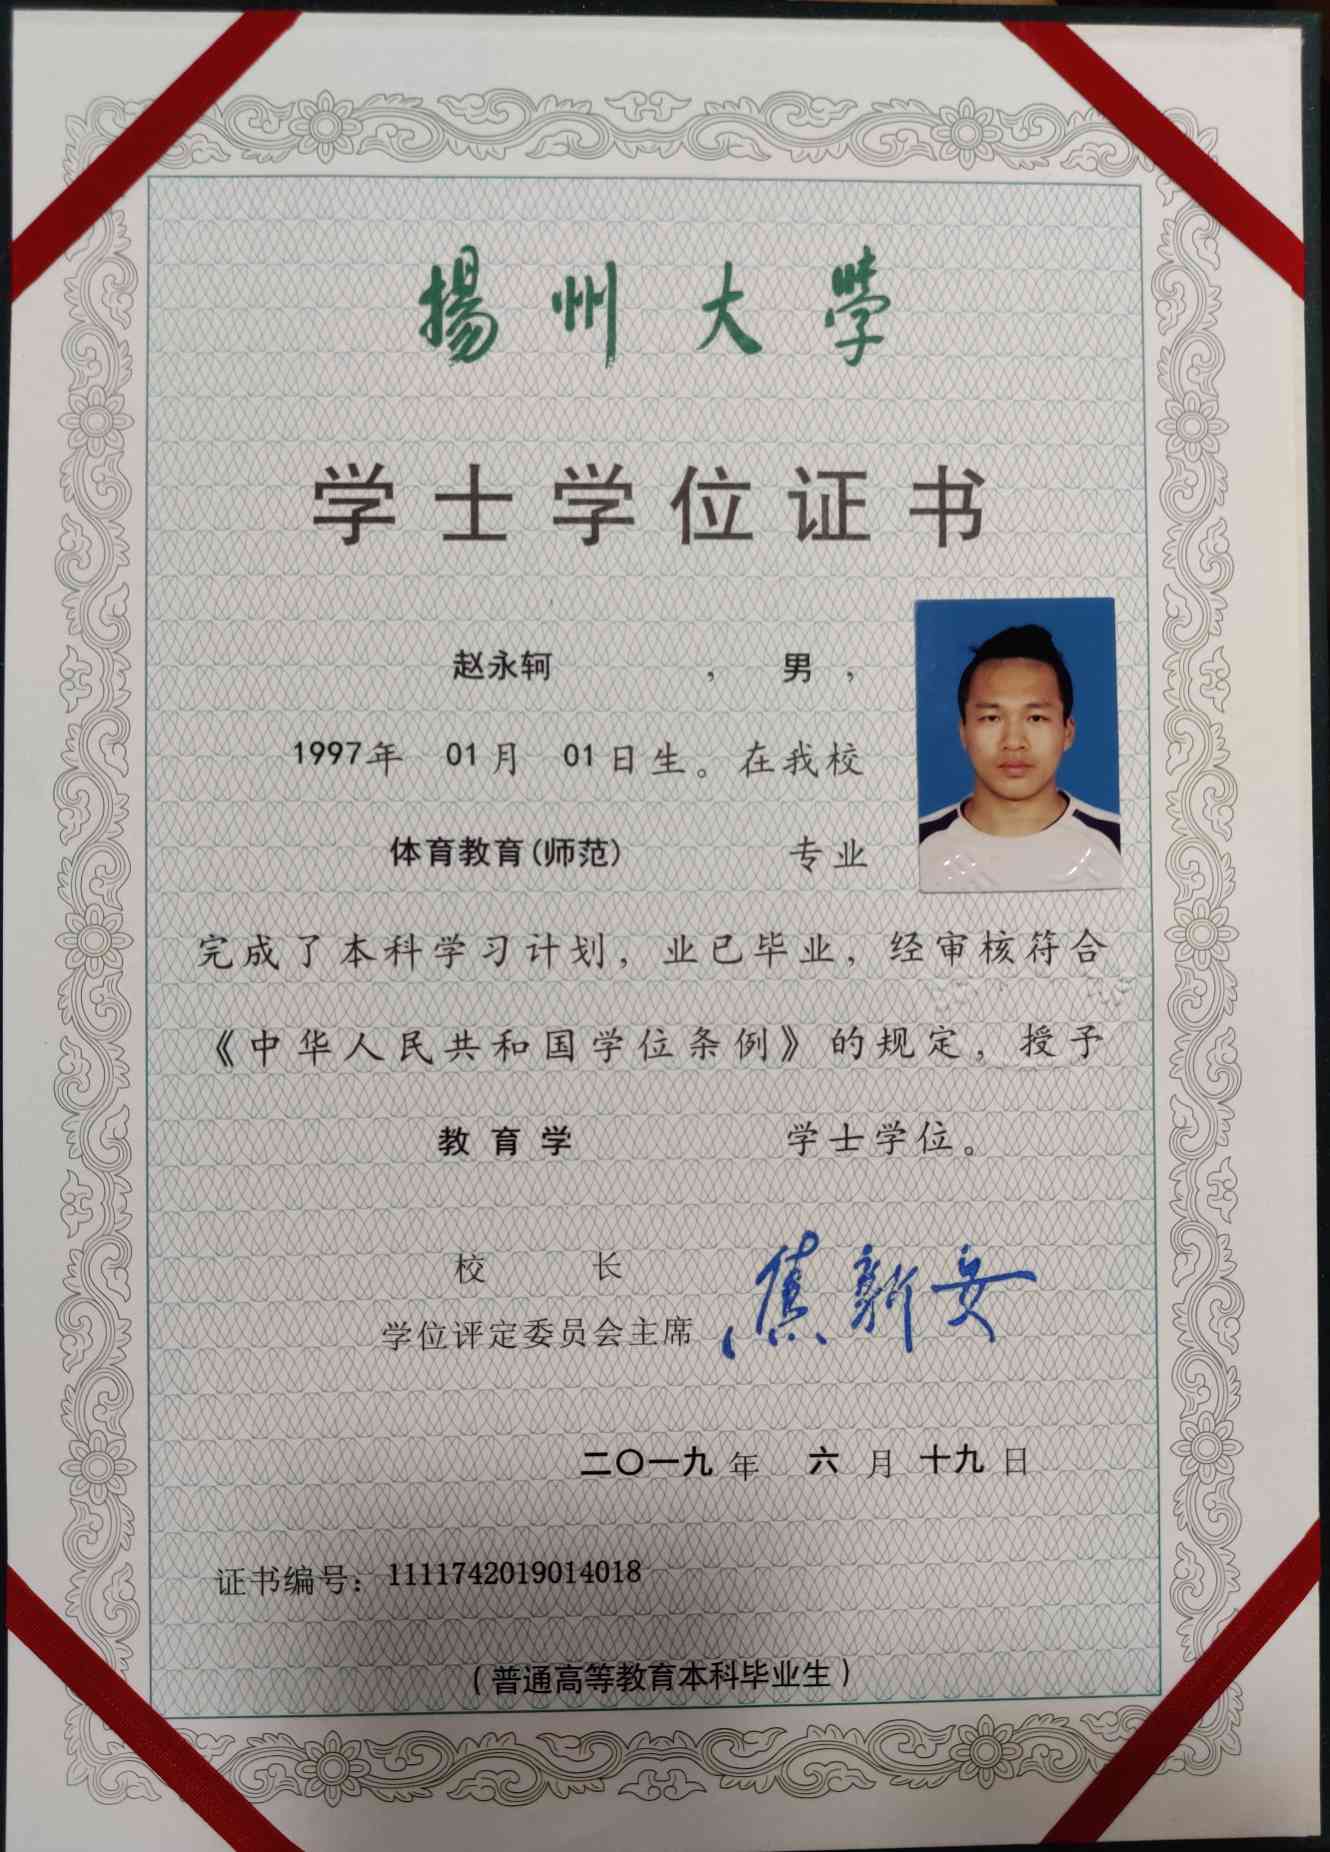 揚州大學
学士学位证书
赵永轲 , 男 ,
1997年 01月 01日生。在我校
体育教育(师范) 专业
完成了本科学习计划，业已毕业，经审核符合
《中华人民共和国学位条例》的规定，授予
教育学 学士学位。
校 长
学位评定委员会主席 焦新安
二〇一九 年 六 月 十九 日
证书编号：1111742019014018
(普通高等教育本科毕业生)